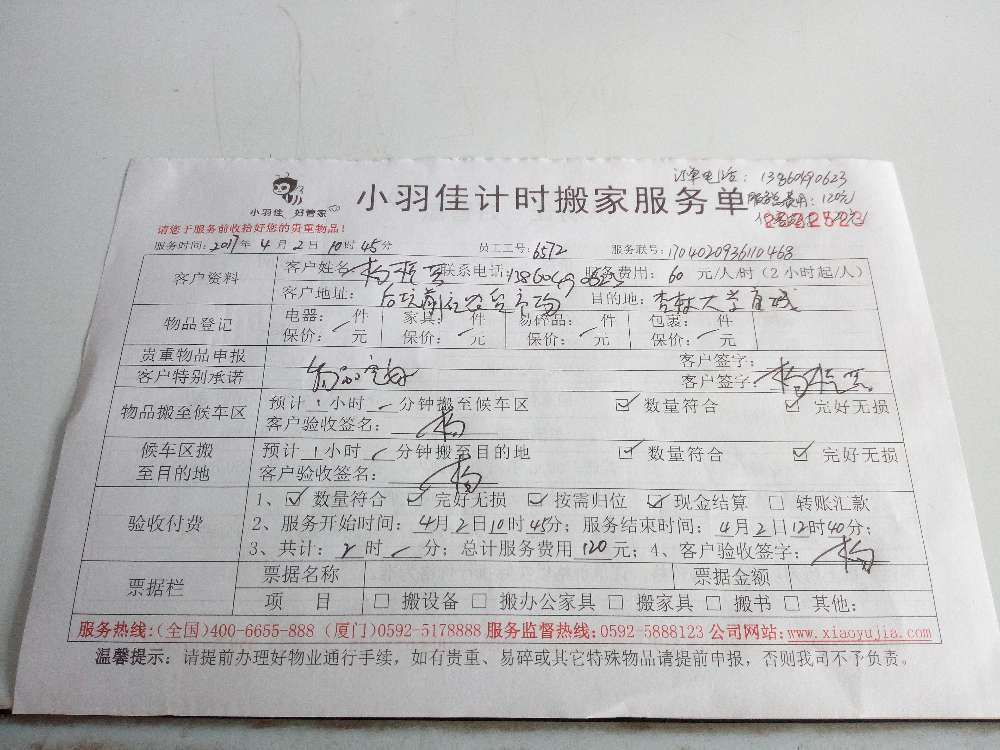 订单电话: 13860490623
小羽佳 好管家
小羽佳计时搬家服务单
服务总费用: 120元
请您于服务前收拾好您的贵重物品!
服务时间: 2017年 4月 2日 10时 45分 员工工号: 6572 服务联号: 170402093611046B
客户资料
客户姓名 杨 联系电话: 13860490623 服务费用: 60 元/人/时 (2小时起/人)
客户地址: 目的地: 杏林大学
物品登记
电器: 件 家具: 件 易碎品: 件 包裹: 件
保价: 元 保价: 元 保价: 元 保价: 元
贵重物品申报 客户签字:
客户特别承诺 物品完好 客户签字: 杨
物品搬至候车区
预计 1 小时 分钟搬至候车区 ☑ 数量符合 ☑ 完好无损
客户验收签名: 杨
候车区搬至目的地
预计 1 小时 分钟搬至目的地 ☑ 数量符合 ☑ 完好无损
客户验收签名: 杨
验收付费
1、☑ 数量符合 ☑ 完好无损 ☑ 按需归位 ☑ 现金结算 □ 转账汇款
2、服务开始时间: 4月2日10时45分; 服务结束时间: 4月2日12时40分;
3、共计: 2 时 分; 总计服务费用 120 元; 4、客户验收签字: 杨
票据栏
票据名称 票据金额
项 目 □ 搬设备 □ 搬办公家具 □ 搬家具 □ 搬书 □ 其他:
服务热线:(全国)400-6655-888 (厦门)0592-5178888 服务监督热线:0592-5888123 公司网站:www.xiaoyujia.com
温馨提示: 请提前办理好物业通行手续, 如有贵重、易碎或其它特殊物品请提前申报, 否则我司不予负责。